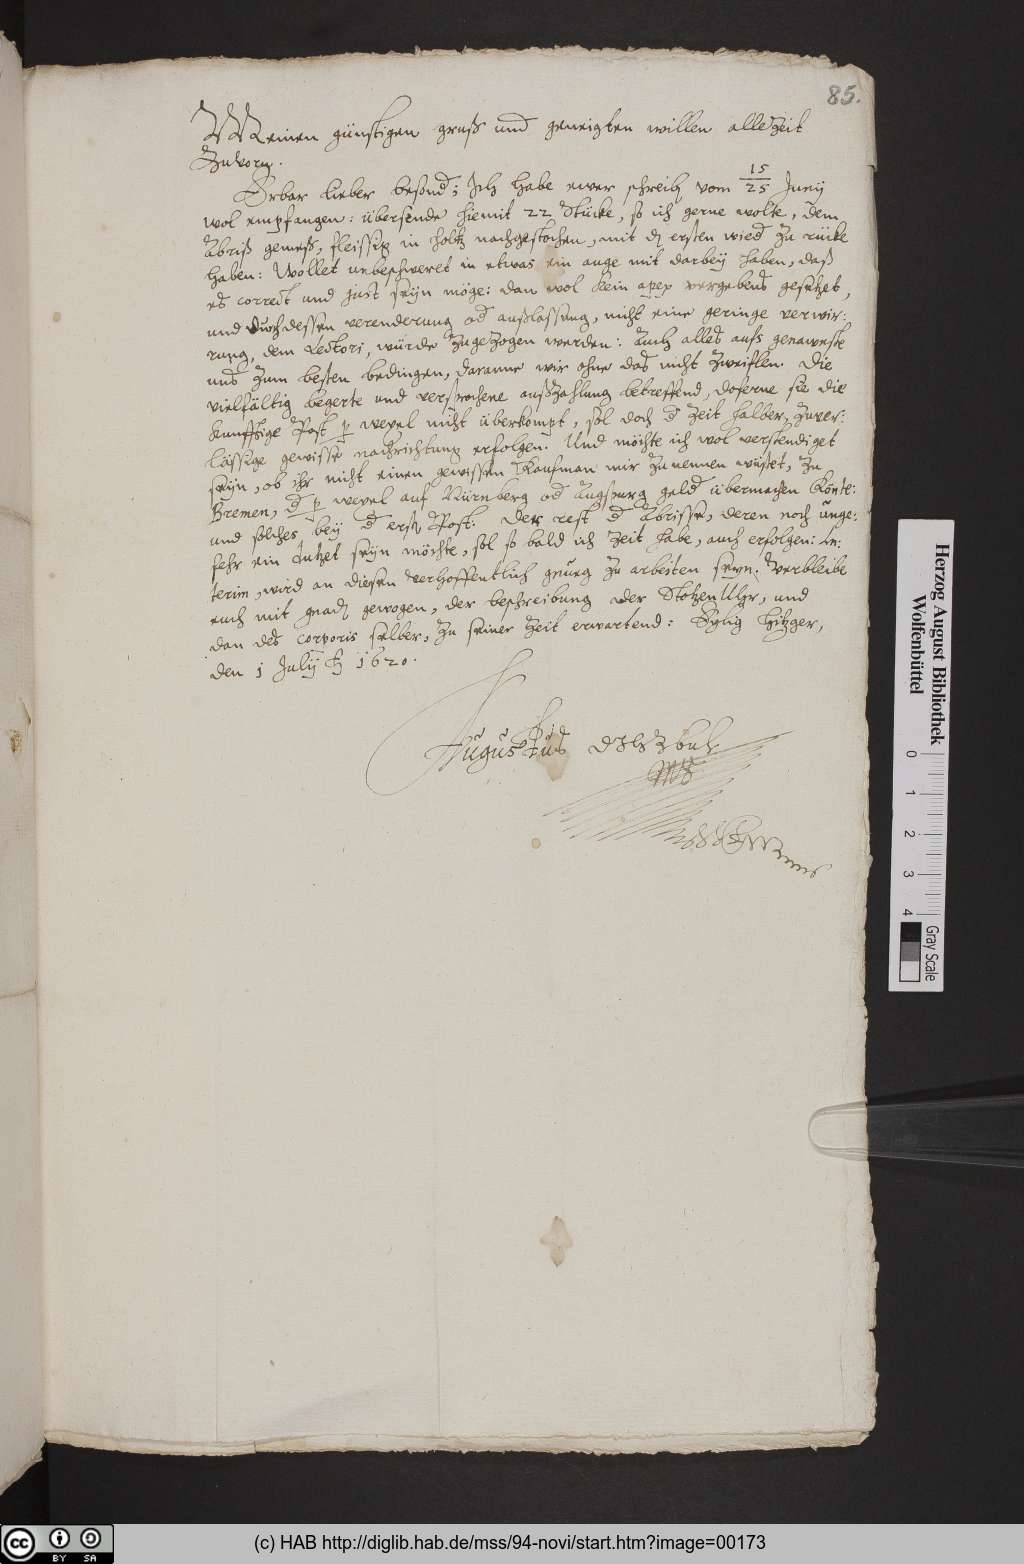 85.
Meinen günstigen gruß und geneigten willen allezeit
Zuvorn.
Erbar lieber besond; Ich habe ewer schreib vom 15/25 Junij
wol empfangen: übersende hiemit 22 Stücke, so ich gerne wolte, dem
Abriß gemeß, fleissig in holtz nachgestochen, mit erster wied zu rücke
haben: Wollet unbeschweret in etwas ein auge mit darbeij haben, daß
es correct und just seijn möge: dan wol kein apex vergebens gesetzet,
und durch dessen verenderung od außlassung, nicht eine geringe verwir:
rung, dem Lectori, würde zugezogen werden: Auch alles aufs genaweste
uns zum besten bedingen, daranne wir ohne das nicht zweiflen. Die
vielfältig begerte und versprochene außzahlung betreffend, doferne sie die
kunfftige Post p wexel nicht überkompt, sol doch d Zeit halber, zuver:
lässige gewisse nachrichtung erfolgen. Und möchte ich wol verstendiget
seijn, ob ihr nicht einen gewissen Kaufman mir zunennen wüstet, zu
Bremen, d p wexel auf Nürnberg od Augspurg geld übermachen könte:
und solches beij d erst Post. Der rest d Abrisse, deren noch unge:
fehr ein Dutzet seijn möchte, sol so bald ich Zeit habe, auch erfolgen: In:
terim, wird an diesen verhoffentlich gnueg zu arbeiten seyn. Verbleibe
euch mit gnad gewogen, der beschreibung der Uhr, und
dan des corporis selber, zu seiner Zeit erwartend: Eylig Hitzger,
den 1 Julij 1620.
Augustus